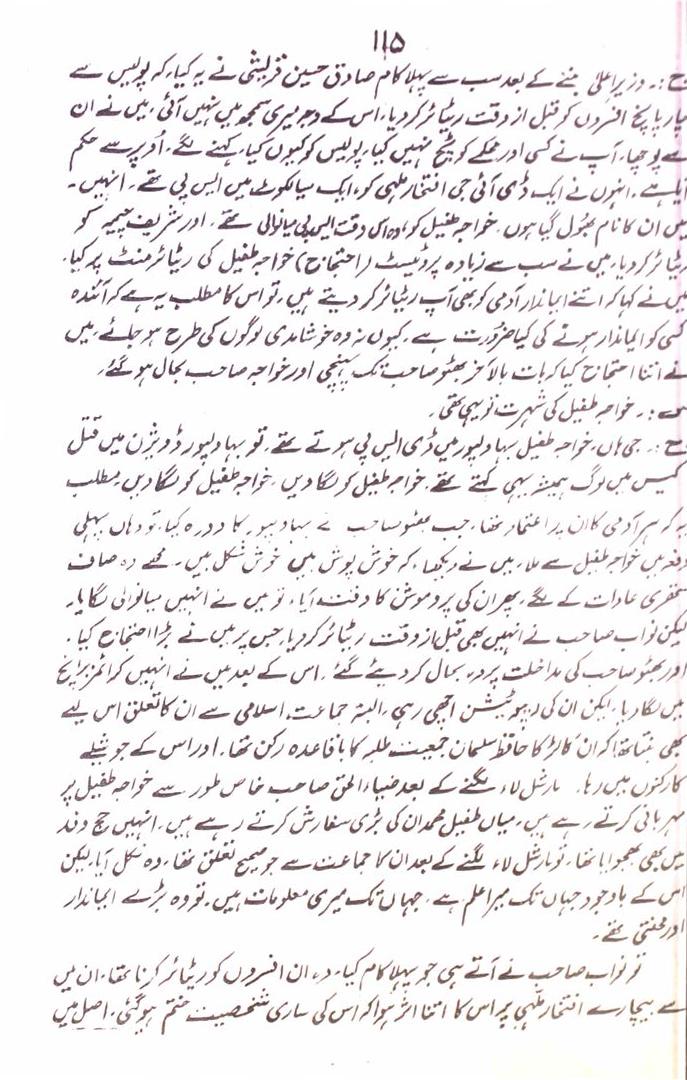 ۱۱۵
ج:۔ وزیر اعلیٰ بننے کے بعد سب سے پہلا کام صادق حسین قریشی نے یہ کیا، کہ پولیس سے
چار پانچ افسروں کو قبل از وقت ریٹائر کر دیا، اس کے وجہ میری سمجھ میں نہیں آئی، میں نے ان
سے پوچھا، آپ نے کسی اور محکمے کو ٹچ نہیں کیا، پولیس کو کیوں کیا، کہنے لگے، اُوپر سے حکم
آیا ہے۔ انہوں نے ایک ڈی آئی جی افتخار ملہی کو، ایک سیالکوٹ میں ایس پی تھے، انہیں۔
میں ان کا نام بھول گیا ہوں، خواجہ طفیل کو، وہ اس وقت ایس پی میانوالی تھے، اور شریف چیمہ کو
ریٹائر کر دیا، میں نے سب سے زیادہ پروٹیسٹ (احتجاج) خواجہ طفیل کی ریٹائرمنٹ پر کیا،
میں نے کہا کہ اتنے ایماندار آدمی کو بھی آپ ریٹائر کر دیتے ہیں، تو اس کا مطلب یہ ہے کہ آئندہ
کسی کو ایماندار ہونے کی کیا ضرورت ہے، کیوں نہ وہ خوشامدی لوگوں کی طرح ہو جائے، میں
نے اتنا احتجاج کیا کہ بات بالآخر بھٹو صاحب تک پہنچی اور خواجہ صاحب بحال ہو گئے،
س:۔ خواجہ طفیل کی شہرت تو یہی تھی۔
ج:۔ جی ہاں، خواجہ طفیل بہاولپور میں ڈی ایس پی ہوتے تھے، تو بہاولپور ڈویژن میں قتل
کیس میں لوگ ہمیشہ یہی کہتے تھے، خواجہ طفیل کو لگا دیں، خواجہ طفیل کو لگا دیں، مطلب
یہ کہ ہر آدمی کا ان پر اعتماد تھا، جب بھٹو صاحب نے بہاولپور کا دورہ کیا، تو وہاں پہلی
دفعہ میں خواجہ طفیل سے ملا، میں نے دیکھا، کہ خوش پوش ہیں خوش شکل ہیں۔ مجھے وہ صاف
ستھری عادات کے لگے، پھر ان کی پروموشن کا وقت آیا، تو میں نے انہیں میانوالی لگایا۔
لیکن نواب صاحب نے انہیں بھی قبل از وقت ریٹائر کر دیا، جس پر میں نے بڑا احتجاج کیا،
اور بھٹو صاحب کی مداخلت پر وہ بحال کر دیئے گئے، اس کے بعد میں نے انہیں کرائمز برانچ
میں لگا دیا، لیکن ان کی ریپوٹیشن اچھی رہی، البتہ جماعت اسلامی سے ان کا تعلق اس لیے
بھی بنتا تھا کہ ان کا لڑکا حافظ سلمان جمعیت طلبہ کا باقاعدہ رکن تھا، اور اس کے جوشیلے
کارکنوں میں رہا، مارشل لاء لگنے کے بعد ضیاء الحق صاحب خاص طور سے خواجہ طفیل پر
مہربانی کرتے رہے ہیں، میاں طفیل محمد ان کی بڑی سفارش کرتے رہے ہیں، انہیں حج وفد
میں بھی بھجوایا تھا، تو مارشل لاء لگنے کے بعد ان کا جماعت سے جو صحیح تعلق تھا، وہ نکل آیا، لیکن
اس کے باوجود جہاں تک میرا علم ہے، جہاں تک میری معلومات ہیں، تو وہ بڑے ایماندار
اور محنتی تھے۔
تو نواب صاحب نے آتے ہی جو پہلا کام کیا، وہ ان افسروں کو ریٹائر کرنا تھا، ان میں
سے بیچارے افتخار ملہی پر اس کا اتنا اثر ہوا کہ اس کی ساری شخصیت ختم ہو گئی، اصل میں